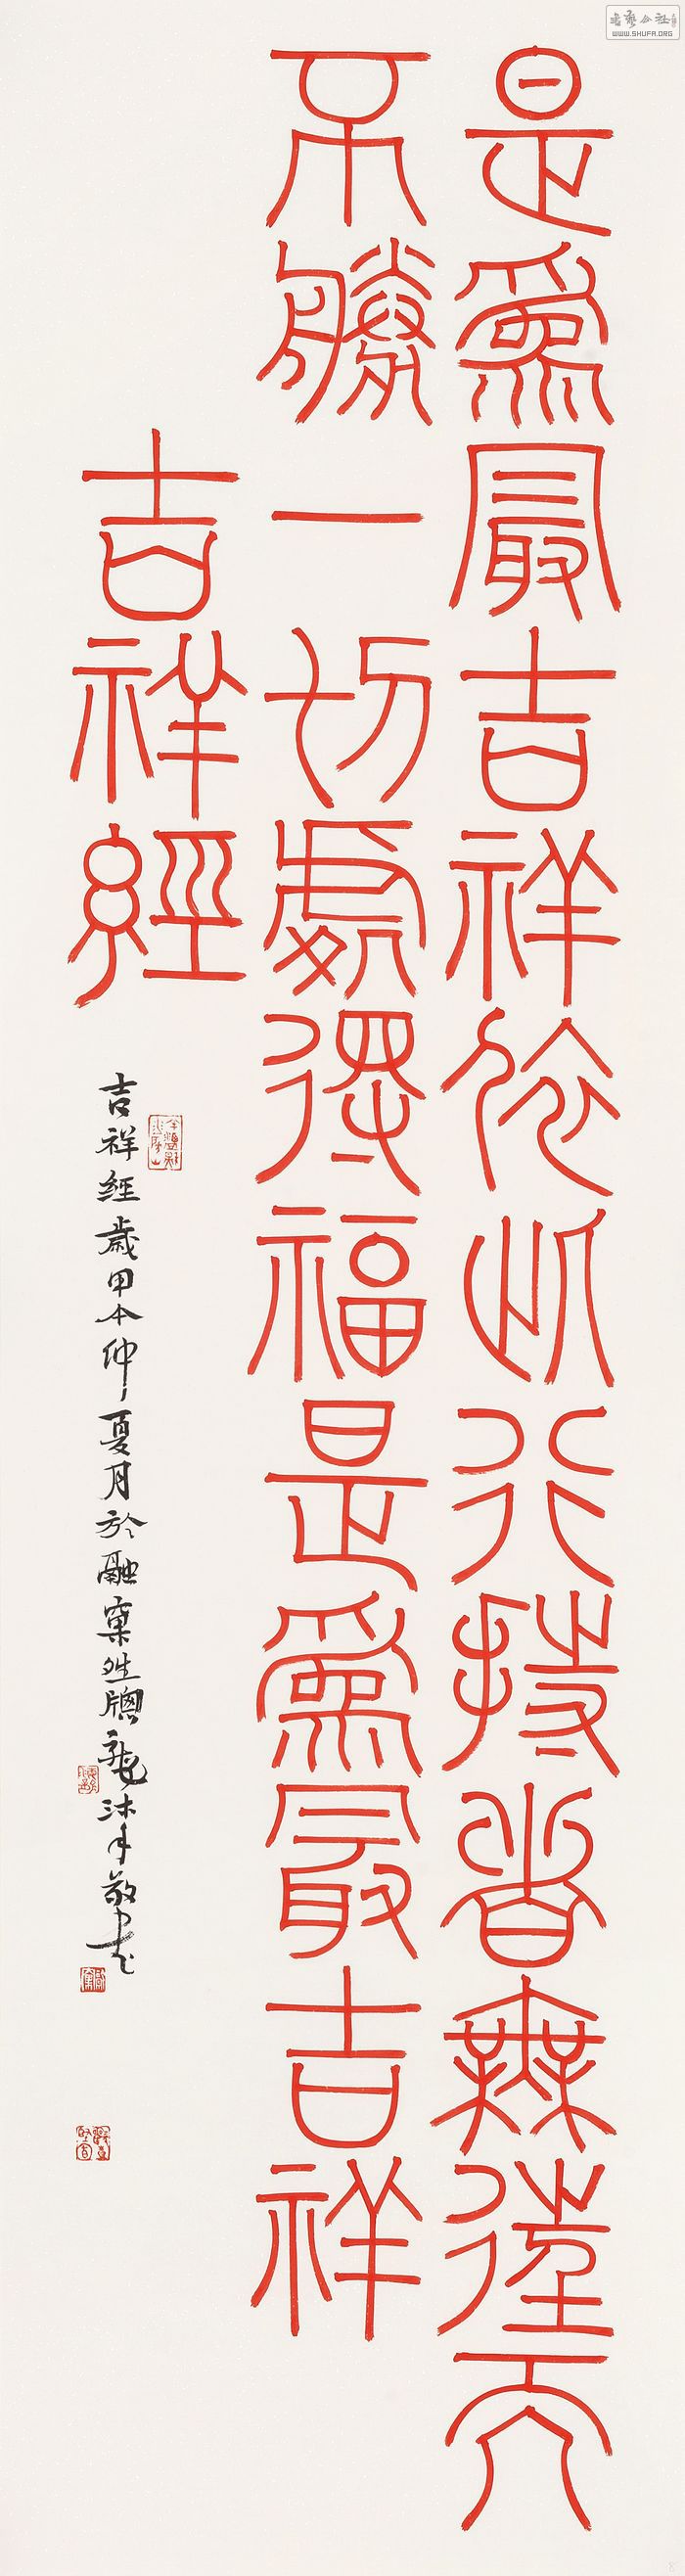 是為最吉祥依此行持者無往而
不勝一切處得福是為最吉祥
吉祥經
吉祥經歲甲午仲夏月於融牕沐手敬書
书艺公社
WWW.SHUFA.ORG